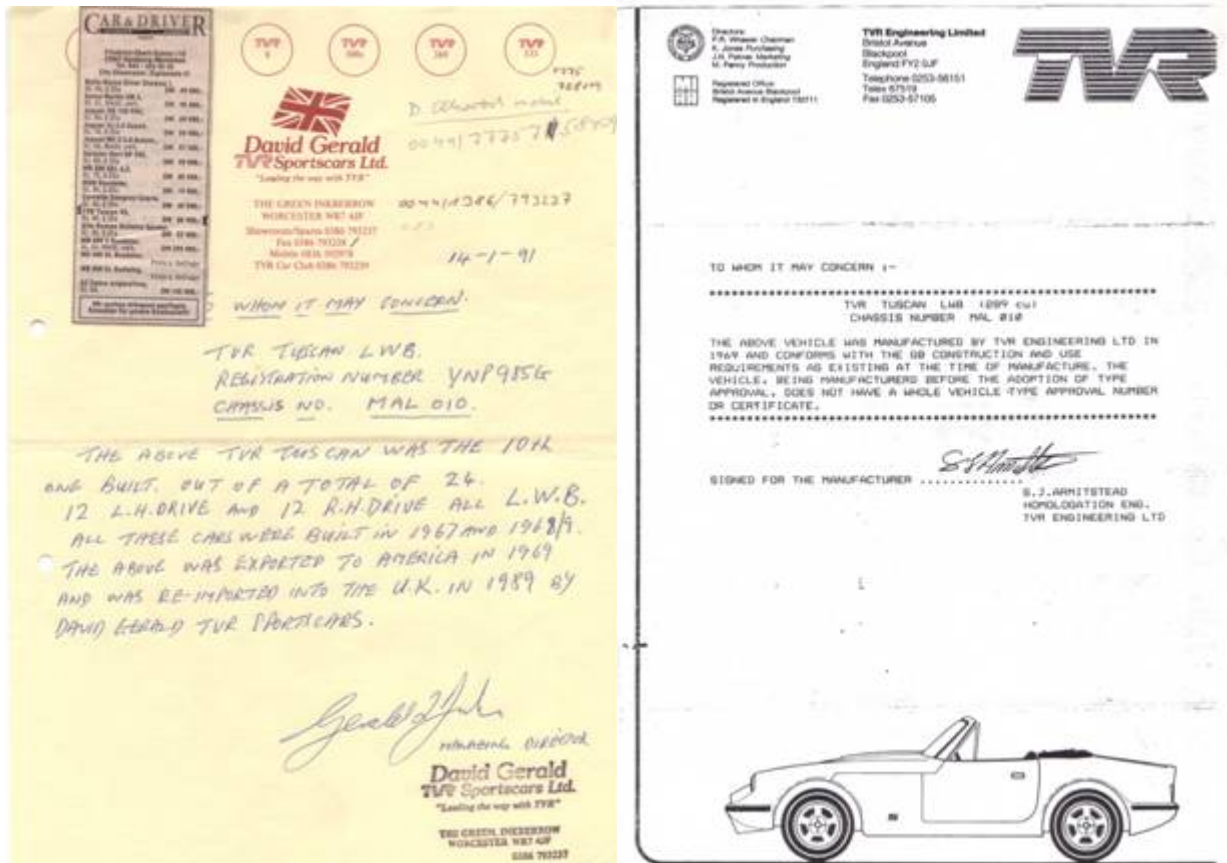 CAR & DRIVER
TVR
TVR
TVR
TVR
David Gerald
TVR Sportscars Ltd.
"Leading the way with TVR"
THE GREEN INKBERROW
WORCESTER WR7 4JF
Showroom/Spares 0386 793237
Fax 0386 793238
Mobile 0836
TVR Car Club 0386 793239
0044/1386/793237
14-1-91
WHOM IT MAY CONCERN.
TVR TUSCAN LWB.
REGISTRATION NUMBER YNP985G
CHASSIS NO. MAL 010.
THE ABOVE TVR TUSCAN WAS THE 10th
ONE BUILT. OUT OF A TOTAL OF 24.
12 L.H.DRIVE AND 12 R.H.DRIVE ALL L.W.B.
ALL THESE CARS WERE BUILT IN 1967 AND 1968/9.
THE ABOVE WAS EXPORTED TO AMERICA IN 1969
AND WAS RE-IMPORTED INTO THE U.K. IN 1989 BY
DAVID GERALD TVR SPORTSCARS.
MANAGING DIRECTOR
David Gerald
TVR Sportscars Ltd.
"Leading the way with TVR"
THE GREEN, INKBERROW
WORCESTER WR7 4JF
0386 793237
Directors:
P.R. Wheeler Chairman
K. Jones Purchasing
J.N. Palmer Marketing
M. Penny Production
Registered Office:
Bristol Avenue Blackpool
Registered in England
TVR Engineering Limited
Bristol Avenue
Blackpool
England FY2 0JF
Telephone 0253-56151
Telex 67519
Fax 0253-57105
TVR
TO WHOM IT MAY CONCERN :-
TVR TUSCAN LWB (289 cu)
CHASSIS NUMBER MAL 010
THE ABOVE VEHICLE WAS MANUFACTURED BY TVR ENGINEERING LTD IN
1969 AND CONFORMS WITH THE GB CONSTRUCTION AND USE
REQUIREMENTS AS EXISTING AT THE TIME OF MANUFACTURE. THE
VEHICLE, BEING MANUFACTURERD BEFORE THE ADOPTION OF TYPE
APPROVAL, DOES NOT HAVE A WHOLE VEHICLE TYPE APPROVAL NUMBER
OR CERTIFICATE.
SIGNED FOR THE MANUFACTURER ..............
S.J.ARMITSTEAD
HOMOLOGATION ENG.
TVR ENGINEERING LTD